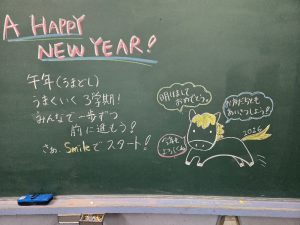 A HAPPY
NEW YEAR!
午年(うまどし)
うまくいく 3学期!
みんなで一歩ずつ
前に進もう!
さぁ Smileでスタート!
明けまして
おめでとう。
お友だちにも
あいさつしよう!
今年も
よろしくね
2026